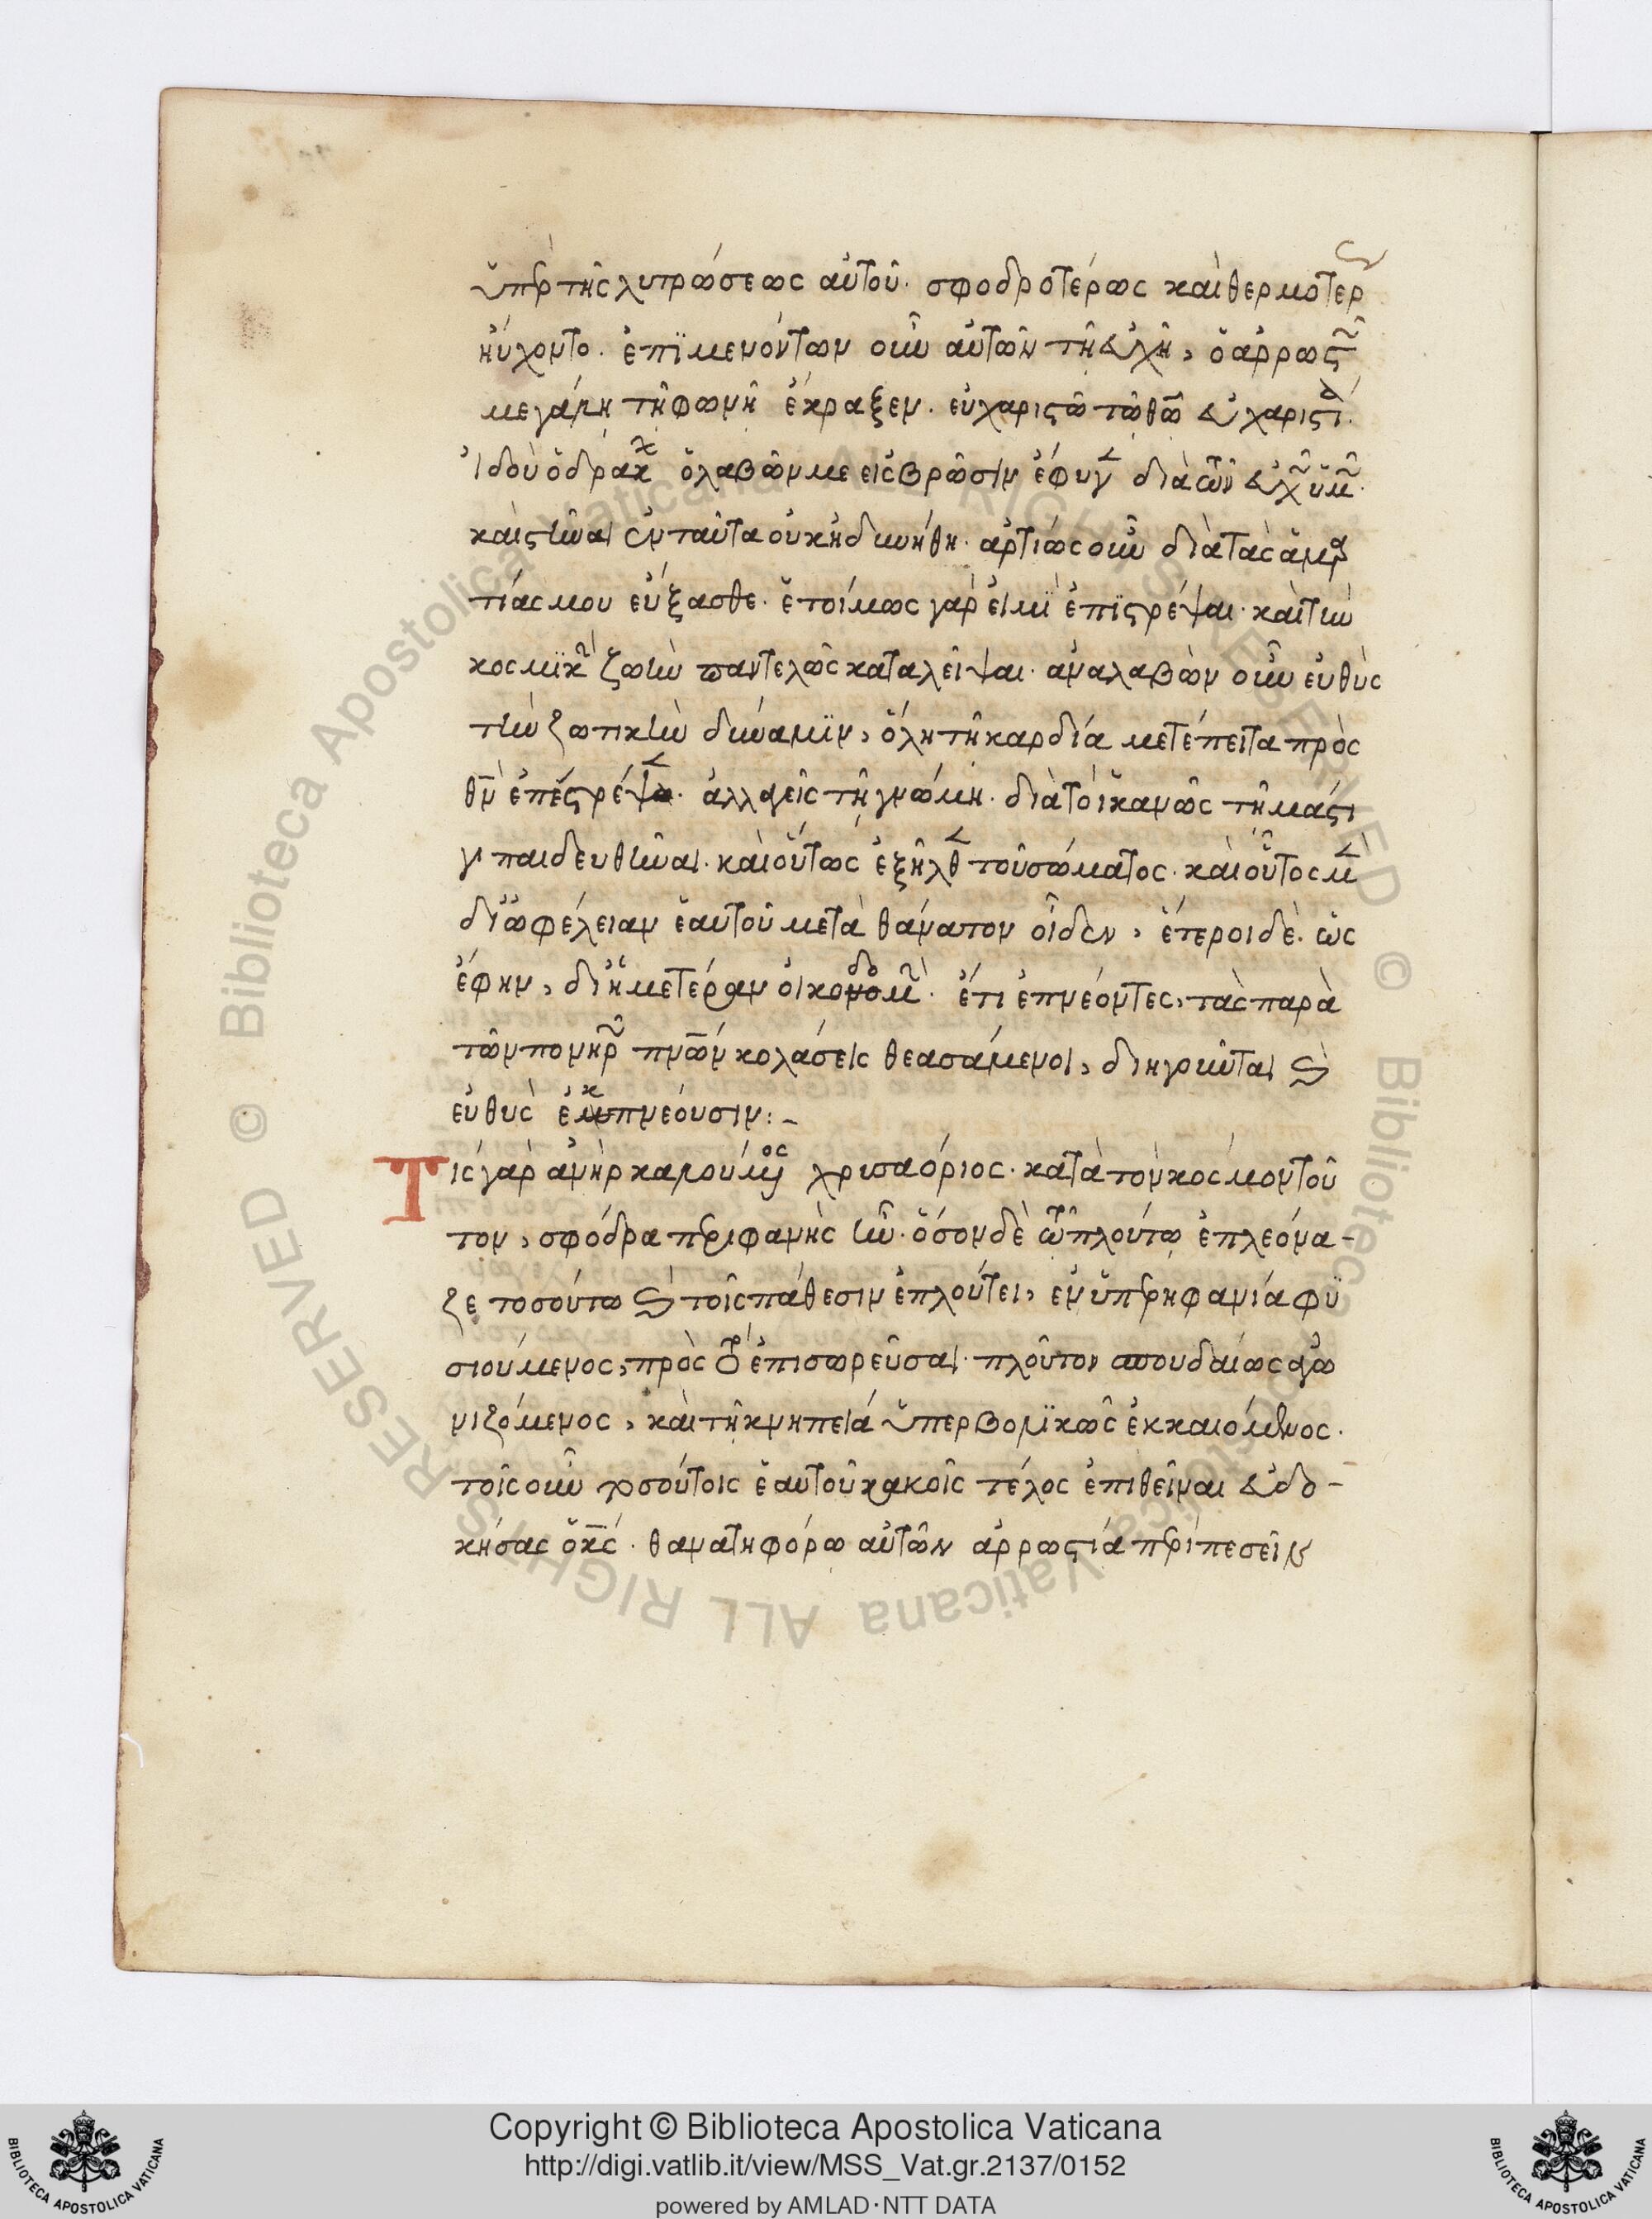 ὑπὲρ τῆς λυτρώσεως αὐτοῦ· σφοδροτέρως καὶ θερμοτέρ
ηὔχοντο· ἐπϊμενόντων οὖν αὐτῶν τῆ εὐχῆ, ὁ ἄρρωστ
μεγάλη τῆ φωνῆ ἔκραξεν· εὐχαριστῶ τῶ θῶ εὐχαριστ
ἰδοὺ ὁ δράκ ὁ λαβῶν με εἰς βρῶσιν ἔφυγ διὰ τῶν εὐχ ὑμ
καὶ στῆναι ἐνταῦτα οὐκ ἠδυνήθη· ἀρτίως οὖν διὰ τὰς ἁμαρ
τίας μου εὔξασθε· ἑτοίμως γάρ εἰμϊ ἐπϊστρέψαι· καὶ τὴν
κοσμϊκ ζωὴν παντελῶς καταλεῖψαι· ἀναλαβὼν οὖν εὐθὺς
τὴν ζωτικὴν δύναμϊν, ὅλη τῆ καρδία μετέπειτα πρὸς
θν ἐπέστρέψ· ἀλλαγεὶς τῆ γνώμη· διὰ τὸ ἱκανῶς τῆ μάστι
γι παιδευθῆναι· καὶ οὕτως ἐξῆλθ τοῦ σώματος· καὶ οὗτος μ
δι' ὠφέλειαν ἑαυτοῦ μετὰ θάνατον οἶδεν, ἕτεροι δὲ· ὡς
ἔφην, δι' ἡμετέραν οἰκοδομ· ἔτι ἐπνέοντες, τὰς παρὰ
τῶν πονηρ πνων κολάσεις θεασάμενοι, διηγοῦνται καὶ
εὐθὺς ἐκπνέουσιν:-
Τις γὰρ ἀνὴρ καλούμενος χρισαόριος· κατὰ τὸν κόσμον τοῦ
τον, σφόδρα περιφανὴς ἦν· ὅσον δὲ τῶ πλούτω ἐπλεόνα-
ζε τοσούτω καὶ τοῖς πάθεσιν ἐπλούτει, ἐν ὑπερηφανία φϋ
σιούμενος, πρὸς τὸ ἐπισωρεῦσαι· πλοῦτον σπουδαίως ἀγω
νιζόμενος, καὶ τῆ κνηπεία ὑπερβολϊκῶς ἐκκαιόμενος·
τοῖς οὖν τοσούτοις ἑαυτοῦ κακοῖς τέλος ἐπιθεῖναι εὐδο-
κήσας ὁ κς· θανατηφόρω αὐτῶν ἀρρωστία περιπεσεῖν
Copyright © Biblioteca Apostolica Vaticana
http://digi.vatlib.it/view/MSS_Vat.gr.2137/0152
powered by AMLAD·NTT DATA
BIBLIOTECA APOSTOLICA VATICANA
BIBLIOTECA APOSTOLICA VATICANA
© Biblioteca Apostolica Vaticana ALL RIGHTS RESERVED
© Biblioteca Apostolica Vaticana ALL RIGHTS RESERVED